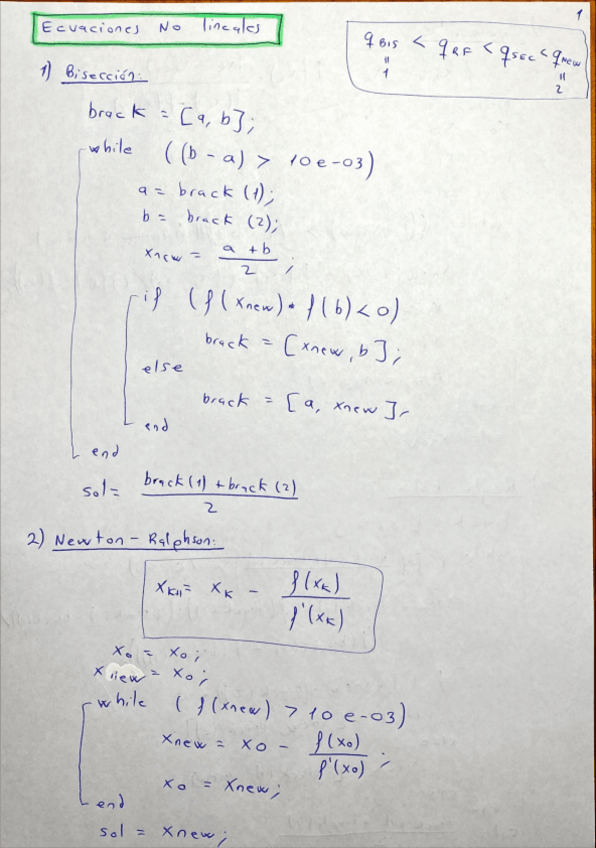 1
Ecuaciones No lineales
q BIS < q RF < q SEC < q NEW
= =
1 2
1) Bisección:
brack = [a, b];
while ((b - a) > 10e-03)
a = brack (1);
b = brack (2);
xnew = a + b / 2 ;
if (f(xnew) * f(b) < 0)
brack = [xnew, b];
else
brack = [a, xnew];
end
end
sol = brack(1) + brack(2) / 2
2) Newton - Ralphson:
x_{k+1} = x_k - f(x_k) / f'(x_k)
x0 = x0;
xnew = x0;
while (f(xnew) > 10e-03)
xnew = x0 - f(x0) / f'(x0) ;
x0 = xnew;
end
sol = xnew;